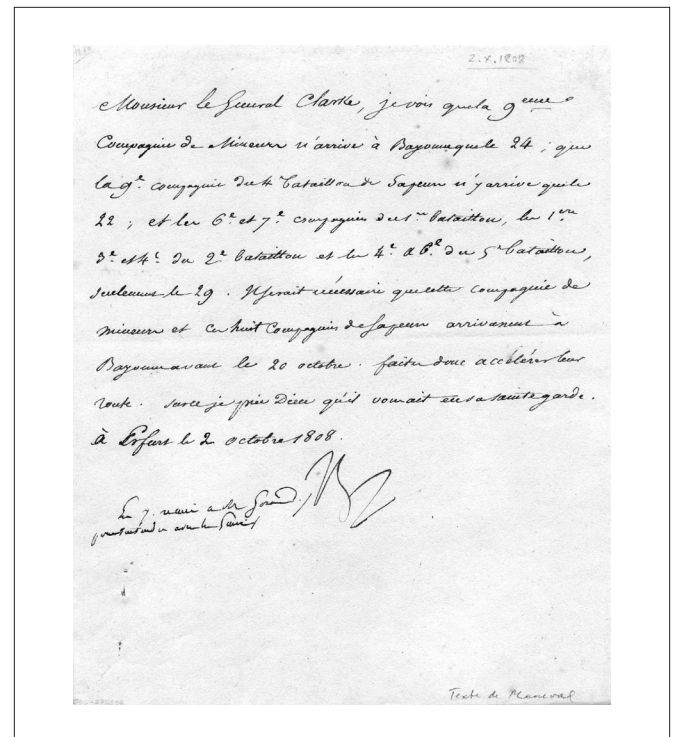 2.X.1808
Monsieur le General Clarke, je vois que la 9eme
Compagnie de Mineurs n'arrive à Bayonne que le 24 ; que
la 9e. compagnie du 4 bataillon de Sapeurs n'y arrive que le
22 ; et les 6e. et 7e. compagnies du 1er bataillon, les 1ere
3e. et 4e. du 2e. bataillon et les 4e. et 6e. du 5e bataillon,
seulement le 29. Il serait nécessaire que cette compagnie de
mineurs et ces huit Compagnies de Sapeurs arrivassent à
Bayonne avant le 20 octobre. faites donc accélérer leur
route. sur ce je prie Dieu qu'il vous ait en sa sainte garde.
à Erfurt le 2 octobre 1808.
Le 7. remis a Mr
Texte de Meneval